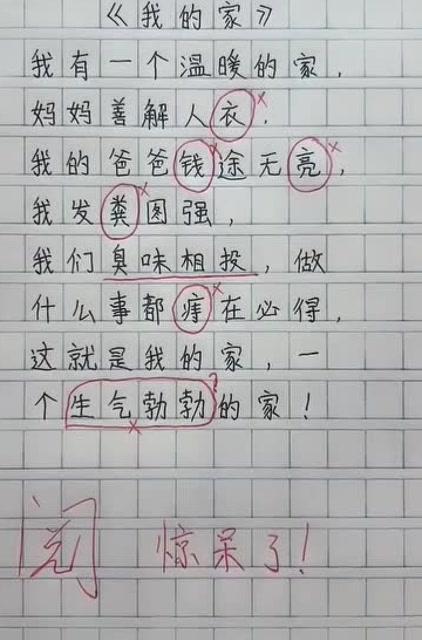 《我的家》
我有一个温暖的家，
妈妈善解人衣，
我的爸爸钱途无亮，
我发粪图强，
我们臭味相投，做
什么事都痔在必得，
这就是我的家，一
个生气勃勃的家！
阅 惊呆了！